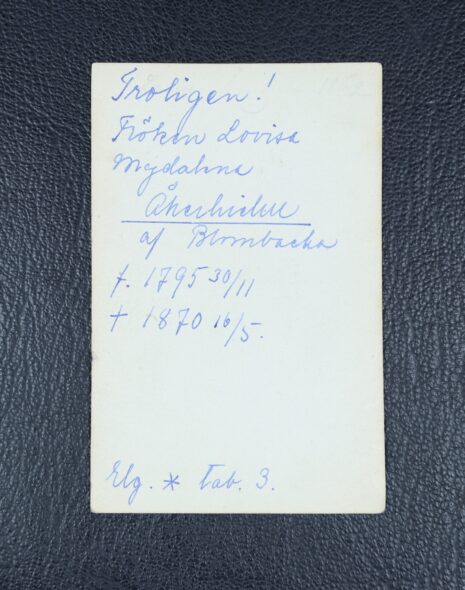 Troligen!
Fröken Lovisa
Magdalena
Åkerhielm
af Blombacka
f. 1795 30/11
† 1870 16/5.
Elg. * Tab. 3.